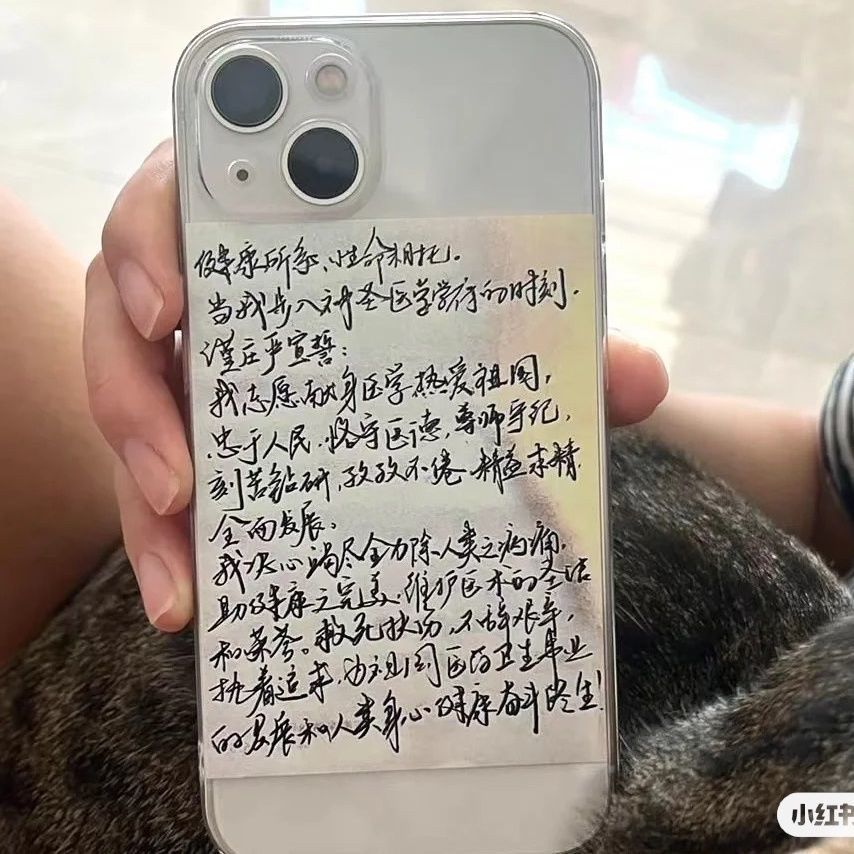 健康所系、性命相托。
当我步入神圣医学学府的时刻.
谨庄严宣誓：
我志愿献身医学热爱祖国，
忠于人民.恪守医德，尊师守纪，
刻苦钻研，孜孜不倦 精益求精.
全面发展。
我决心竭尽全力除人类之病痛.
助健康之完美.维护医术的圣洁
和荣誉。救死扶伤，不辞艰辛，
执着追求，为祖国医药卫生事业
的发展和人类身心健康奋斗终生！
小红书